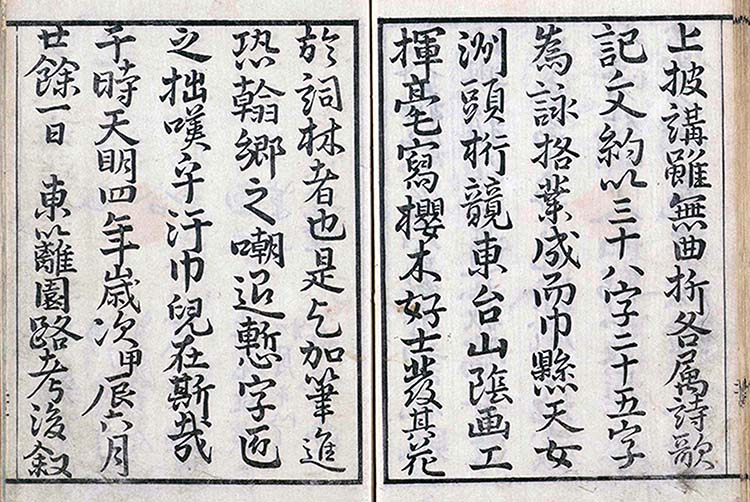 上披講雖無曲折各属詩歌
記文約以三十八字二十五字
為詠格業成而巾懸天女
洲頭桁競東台山陰画工
揮毫寫櫻木好士發其花
於詞林者也是乞加筆進
恐翰郷之嘲退慙字匠
之拙嘆乎汗巾兒在斯哉
于時天明四年歳次甲辰六月
廿餘一日 東籬園路考後叙